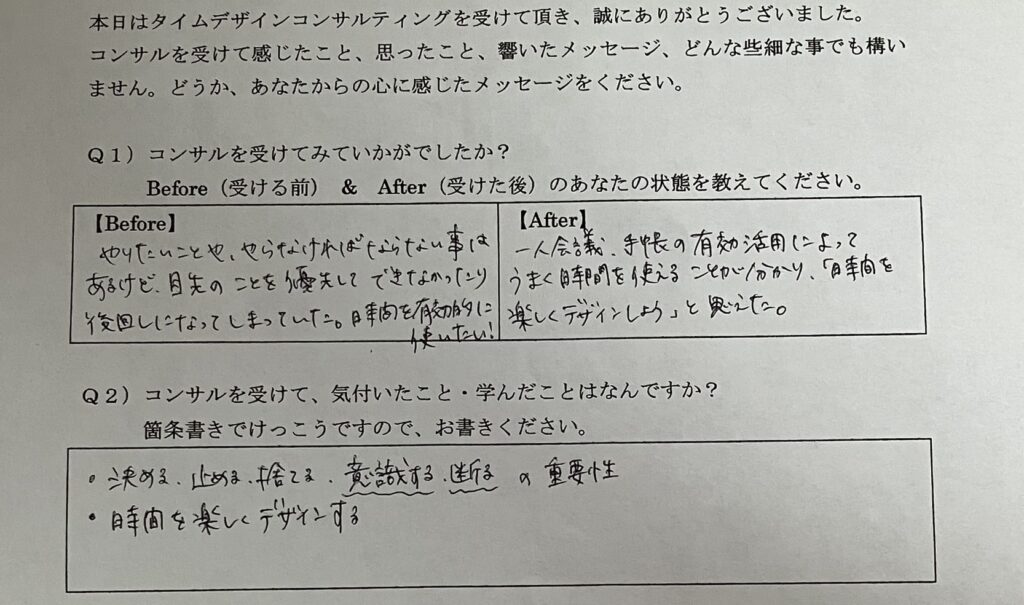 本日はタイムデザインコンサルティングを受けて頂き、誠にありがとうございました。
コンサルを受けて感じたこと、思ったこと、響いたメッセージ、どんな些細な事でも構い
ません。どうか、あなたからの心に感じたメッセージをください。
Q1）コンサルを受けてみていかがでしたか？
Before（受ける前） & After（受けた後）のあなたの状態を教えてください。
【Before】
やりたいことや、やらなければならない事は
あるけど、目先のことを優先してできなかったり
後回しになってしまっていた。時間を有効的に
使いたい！
【After】
一人会議、手帳の有効活用によって
うまく時間を使えることが分かり、「時間を
楽しくデザインしよう」と思えた。
Q2）コンサルを受けて、気付いたこと・学んだことはなんですか？
箇条書きでけっこうですので、お書きください。
・決める、止める、捨てる、意識する、断る の 重要性
・時間を楽しくデザインする